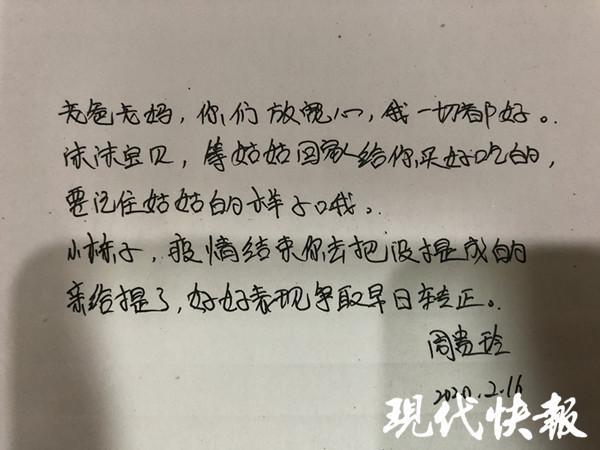 老爸老妈，你们放宽心，我一切都好。
沫沫宝贝，等姑姑回家给你买好吃的，
要记住姑姑的样子哦。
小栋子，疫情结束你去把没提成的
亲给提了，好好表现争取早日转正。
周贵玲
2020.2.16
现代快報